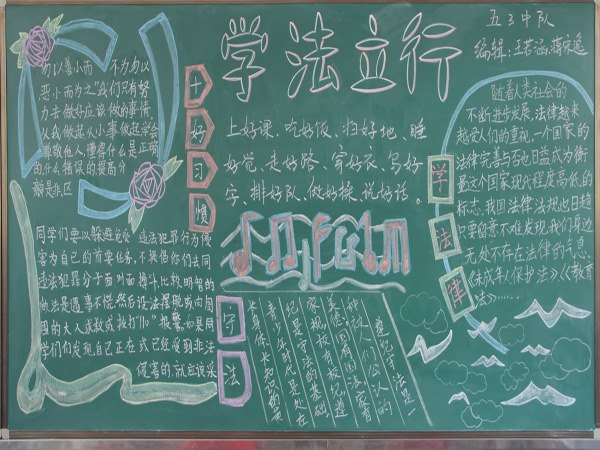 学法立行
五3中队
编辑：王若涵，蒋宋逸
勿以善小而 不为勿以
恶小而为之"我们只有努
力去做好应该做的事情
从我做起从小事做起学会
尊敬他人，懂得什么是正确
的什么错误的，提高分
辨是非区
十好习惯
上好课、吃好饭、扫好地、睡
好觉、走好路、穿好衣、写好
字、排好队、做好操、说好话。
随着人类社会的
不断进步发展，法律越来
越受人们的重视，一个国家的
法律完善与否也日益成为衡
量这个国家现代程度高低的
标志，我国法律法规也日趋
只要留意不难发现，我们身边
无处不存在法律的气息，
《未成年人保护法》《教育
法》……
学法律
同学们要以躲避免受 违法犯罪行为侵
害为自己的首要任务，不提倡你们去同
违法犯罪分子面对面搏斗，比较明智的
办法是遇事不慌，然后设法摆脱或向周
围的大人求救或拨打"110"报警，如果同
学们们发现，自己正在或已经受到非法
侵害的，就应该采
守法
遵纪守法是一
种被人们公认的
美德，国有国法家有
家规，校有校纪，遵
纪是守法的基础
青少年时代是处在
长身体、长知识的发